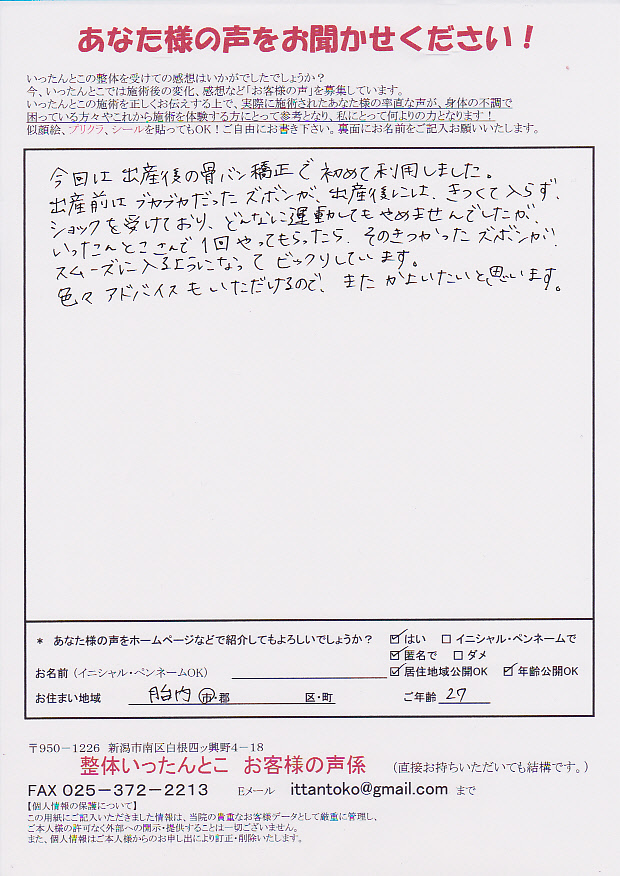 あなた様の声をお聞かせください！
いったんとこの整体を受けての感想はいかがでしたでしょうか？
今、いったんとこでは施術後の変化、感想など「お客様の声」を募集しています。
いったんとこの施術を正しくお伝えする上で、実際に施術されたあなた様の率直な声が、身体の不調で
困っている方々やこれから施術を体験する方にとって参考となり、私にとって何よりの力となります！
似顔絵、プリクラ、シールを貼ってもOK！ご自由にお書き下さい。裏面にお名前をご記入お願いいたします。
今回は出産後の骨バン矯正で初めて利用しました。
出産前はブカブカだったズボンが、出産後には、きつくて入らず、
ショックを受けており、どんなに運動してもやめませんでしたが、
いったんとこさんで1回やってもらったら、そのきつかったズボンが
スムーズに入るようになってビックリしています。
色々アドバイスもいただけるので、またかよいたいと思います。
* あなた様の声をホームページなどで紹介してもよろしいでしょうか？ ☑はい □イニシャル・ペンネームで
☑匿名で □ダメ
お名前（イニシャル・ペンネームOK） ☑居住地域公開OK ☑年齢公開OK
お住まい地域 胎内 市・郡 区・町 ご年齢 27
〒950－1226 新潟市南区白根四ッ興野4－18
整体いったんとこ お客様の声係 （直接お持ちいただいても結構です。）
FAX 025－372－2213 Eメール ittantoko@gmail.com まで
【個人情報の保護について】
この用紙にご記入いただきました情報は、当院の貴重なお客様データとして厳重に管理し、
ご本人様の許可なく外部への開示・提供することは一切ございません。
また、個人情報はご本人様からのお申し出により訂正・削除いたします。